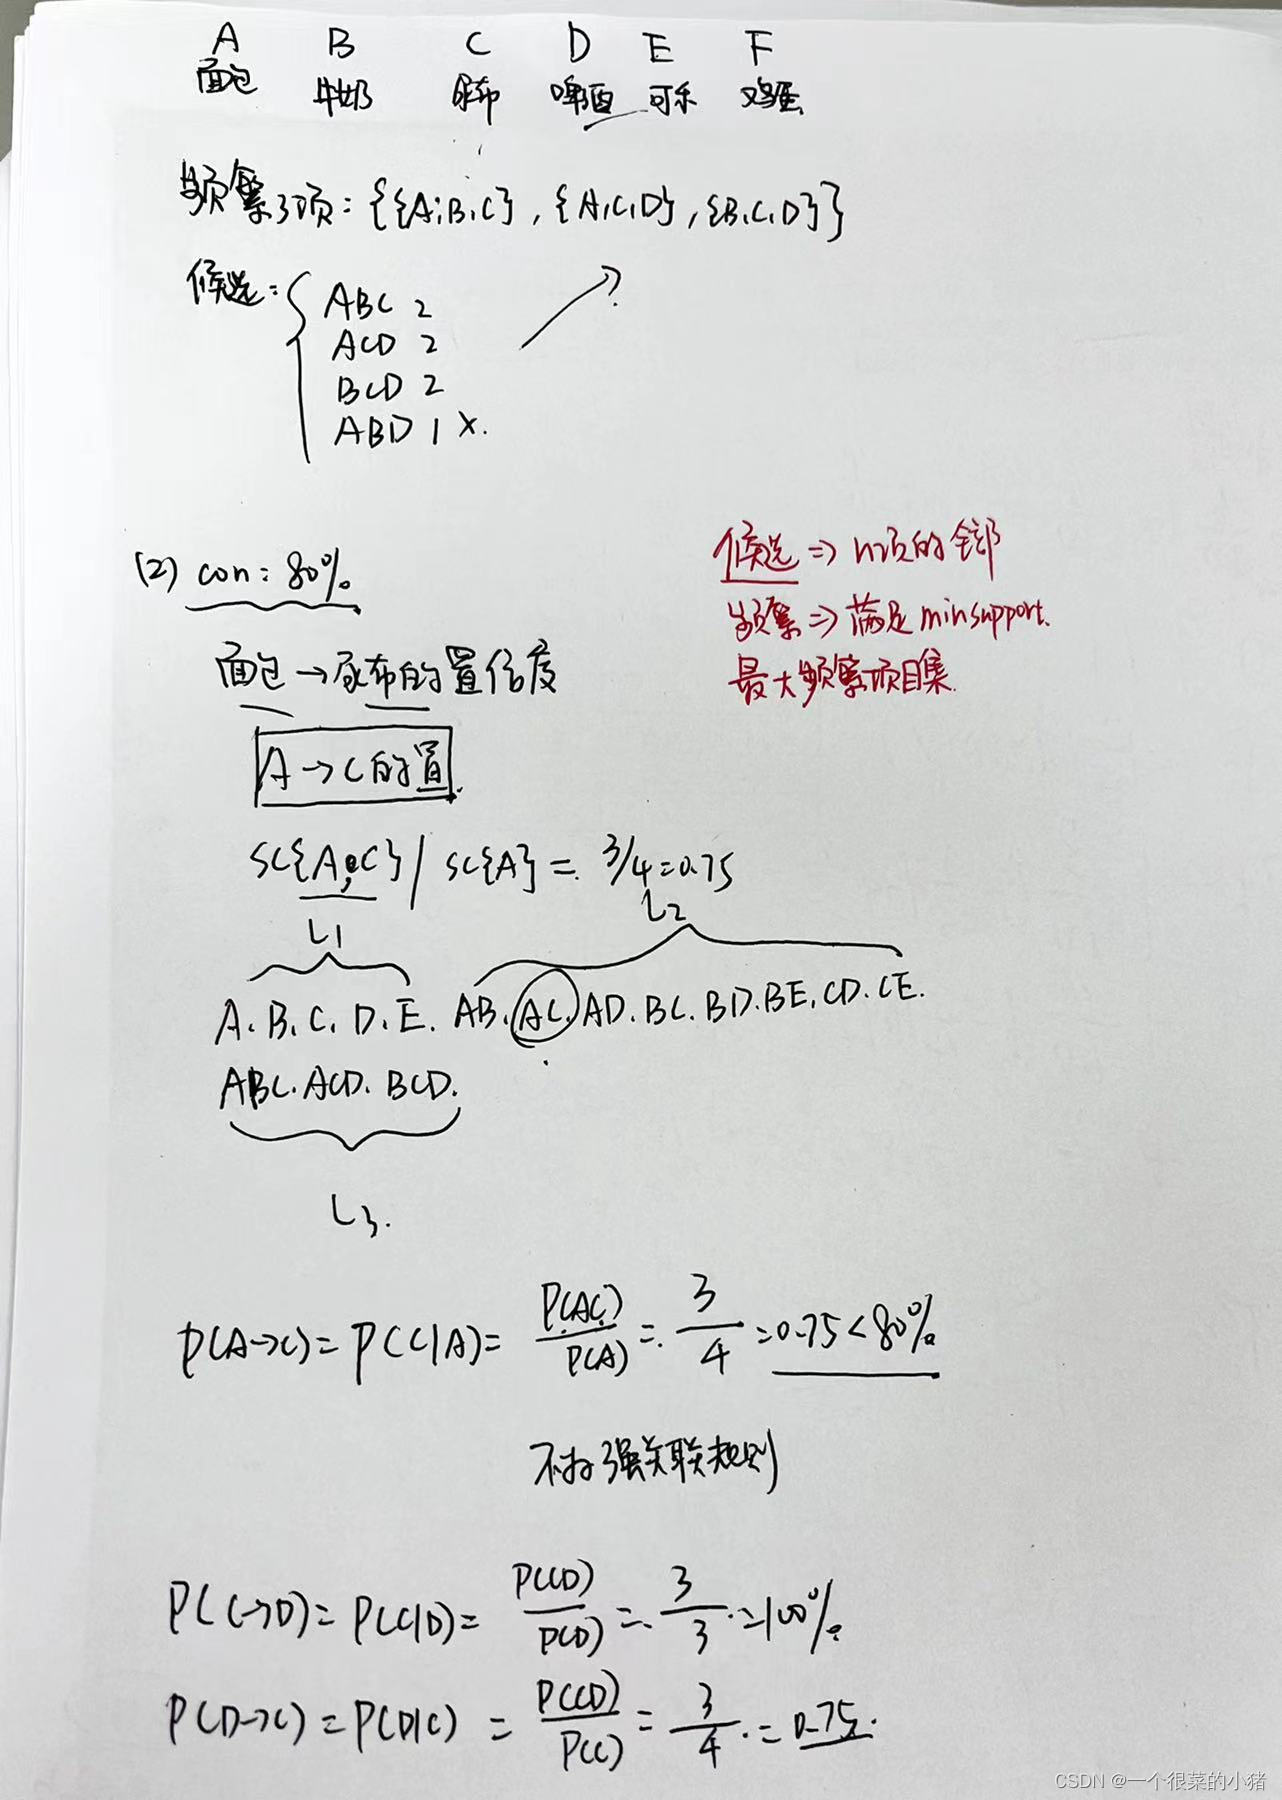 A B C D E F
面包 牛奶 尿布 啤酒 可乐 鸡蛋
频繁3项: {{A,B,C}, {A,C,D}, {B,C,D}}
候选: { ABC 2
ACD 2
BCD 2
ABD 1 ×.
?
(2) con: 80%
候选 => n项的全部
频繁 => 满足minsupport.
最大频繁项目集.
面包→尿布的置信度
A→C的置
SC{A,C} / SC{A} = 3/4=0.75
L1 L2
A. B. C. D. E. AB. AC. AD. BC. BD. BE. CD. CE.
ABC. ACD. BCD.
L3.
P(A→C) = P(C|A) = P(AC)/P(A) = 3/4 = 0.75 < 80%
不为强关联规则
P(C→D) = P(C|D) = P(CD)/P(D) = 3/3 = 100%.
P(D→C) = P(D|C) = P(CD)/P(C) = 3/4 = 0.75.
CSDN @一个很菜的小猪